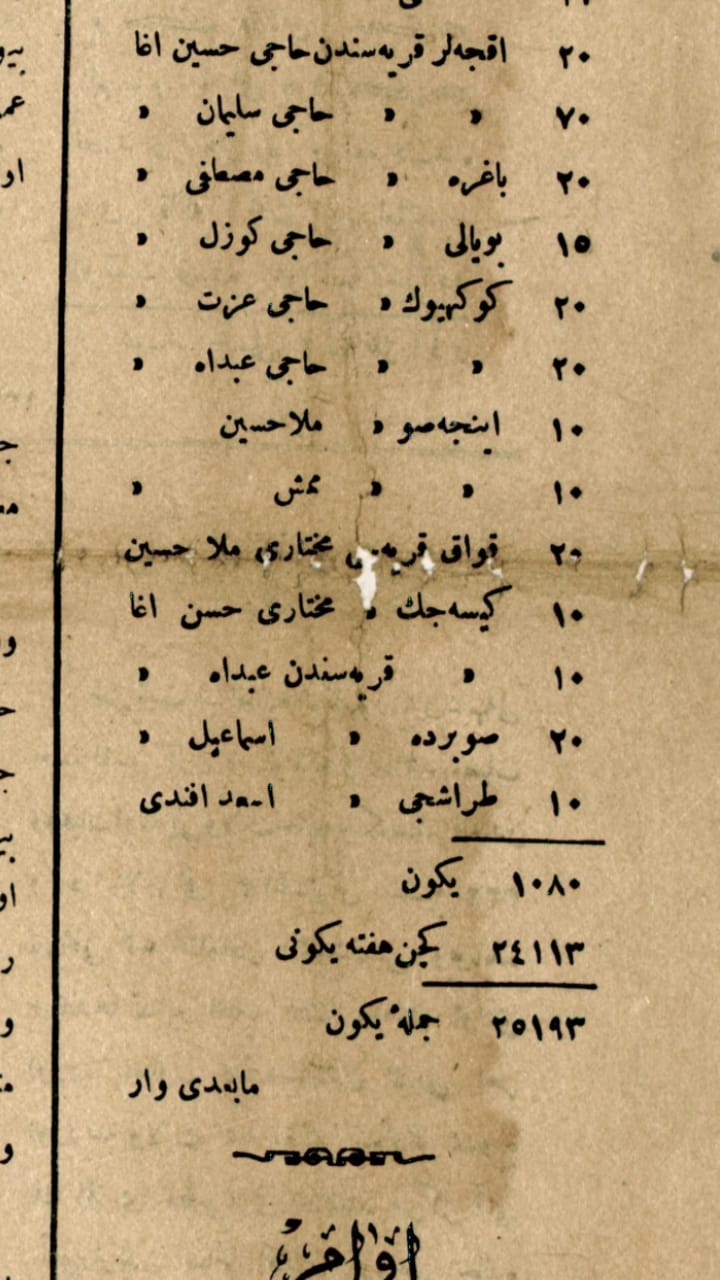 ٢٠ اقجه‌لر قريه‌سندن حاجى حسين اغا
٧٠ » » حاجى سليمان »
٢٠ باغره » حاجى مصطفى »
١٥ بويالى » حاجى كوزل »
٢٠ كوكهيوك » حاجى عزت »
٢٠ » » حاجى عبداه »
١٠ اينجه‌صو » ملاحسين
١٠ » » ممش »
٢٠ قواق قريه‌سى مختارى ملا حسين
١٠ كيسه‌جك » مختارى حسن اغا
١٠ » قريه‌سندن عبداه »
٢٠ صوبرده » اسماعيل »
١٠ طراشجى » اسعد افندى
١٠٨٠ يكون
٢٤١١٣ كچن هفته يكونى
٢٥١٩٣ جملۀ يكون
مابعدى وار